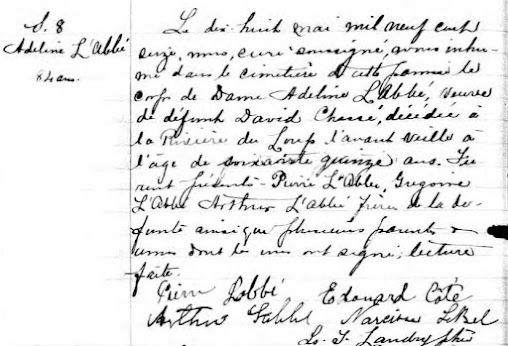 S. 8
Adeline L'Abbé
84 ans.
Le dix-huit mai mil neuf cent
seize, nous, curé soussigné, avons inhu-
mé dans le cimetière de cette paroisse le
corps de Dame Adeline L'Abbé, veuve
de défunt David Chassé, décédée à
la Rivière du Loup l'avant veille à
l'âge de soixante quinze ans. Fu-
rent présents Pierre L'Abbé, Grégoire
L'Abbé Arthur L'Abbé frères de la dé-
funte ainsi que plusieurs parents &
amis dont les uns ont signé; lecture
faite.
Pierre Labbé Edouard Côté
Arthur Labbé Narcisse LeBel
Ls. J. Landry Ptre